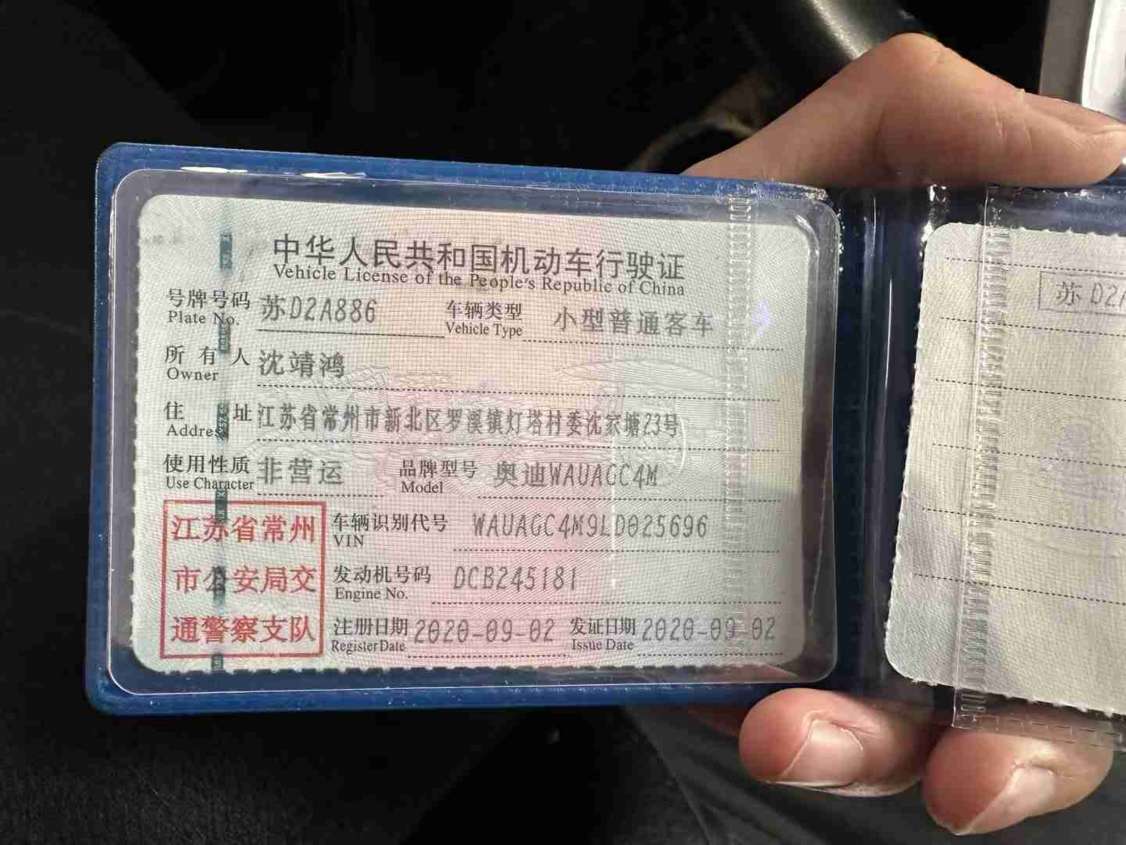 中华人民共和国机动车行驶证
Vehicle License of the People's Republic of China
号牌号码 苏D2A886 车辆类型 小型普通客车
Plate No. Vehicle Type
所有人 沈靖鸿
Owner
住址 江苏省常州市新北区罗溪镇灯塔村委沈家塘23号
Address
使用性质 非营运 品牌型号 奥迪WAUAGC4M
Use Character Model
江苏省常州
市公安局交
通警察支队
车辆识别代号 WAUAGC4M9LD025696
VIN
发动机号码 DCB245181
Engine No.
注册日期 2020-09-02 发证日期 2020-09-02
Register Date Issue Date
苏D2A